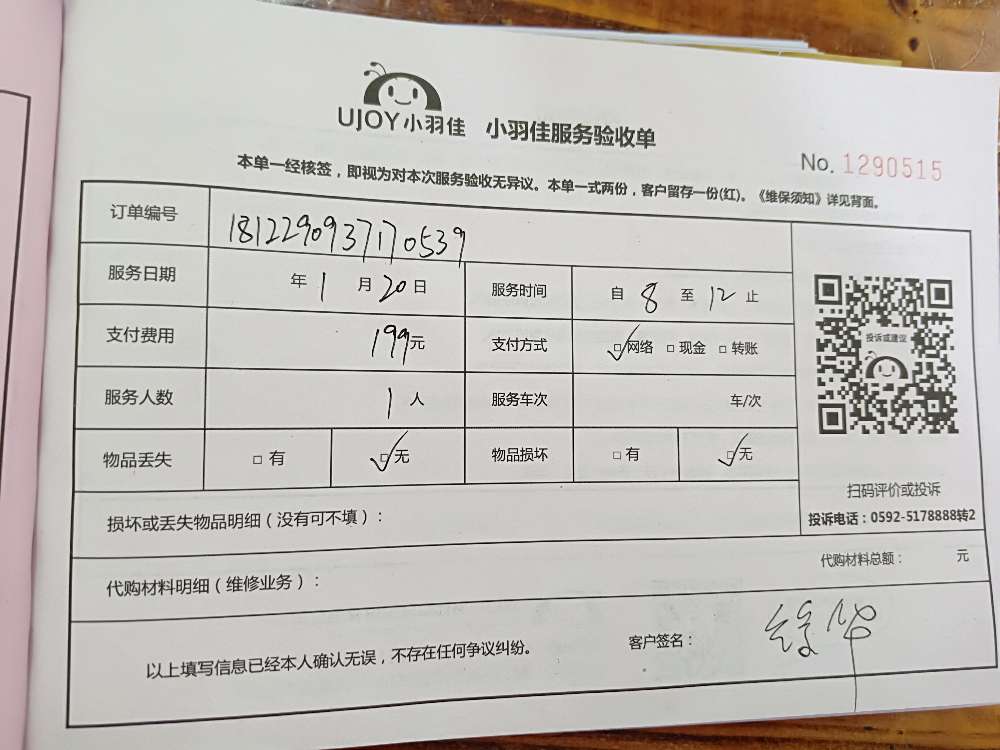 UJOY小羽佳 小羽佳服务验收单
No. 1290515
本单一经核签，即视为对本次服务验收无异议。本单一式两份，客户留存一份(红)。《维保须知》详见背面。
订单编号 1812290937170539
服务日期 年 1 月 20 日 服务时间 自 8 至 12 止
支付费用 199元 支付方式 ☑网络 □现金 □转账
服务人数 1 人 服务车次 车/次
物品丢失 □有 ☑无 物品损坏 □有 ☑无
投诉或建议
扫码评价或投诉
投诉电话：0592-5178888转2
损坏或丢失物品明细（没有可不填）：
代购材料明细（维修业务）： 代购材料总额： 元
以上填写信息已经本人确认无误，不存在任何争议纠纷。 客户签名：